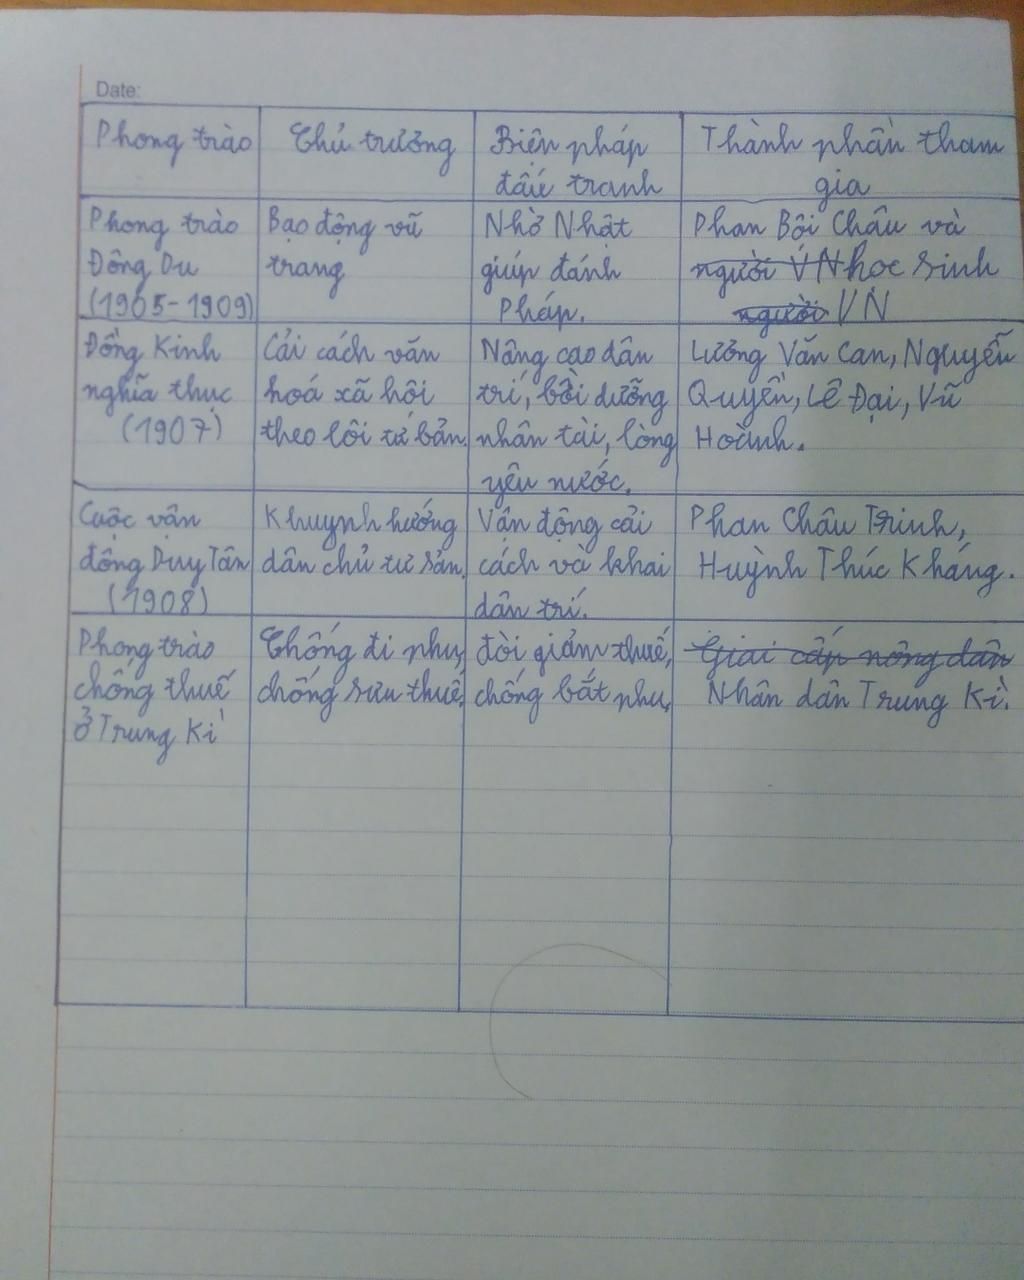 Date:
Phong trào
Chủ trương
Biện pháp
đấu tranh
Thành phần tham
gia
Phong trào
Đông Du
(1905-1909)
Bạo động vũ
trang
Nhờ Nhật
giúp đánh
Pháp.
Phan Bội Châu và
người VN học sinh
người VN
Đông Kinh
nghĩa thục
(1907)
Cải cách văn
hoá xã hội
theo lối tư bản.
Nâng cao dân
trí, bồi dưỡng
nhân tài, lòng
yêu nước.
Lương Văn Can, Nguyễn
Quyền, Lê Đại, Vũ
Hoành.
Cuộc vận
động Duy Tân
(1908)
Khuynh hướng
dân chủ tư sản.
Vận động cải
cách và khai
dân trí.
Phan Châu Trinh,
Huỳnh Thúc Kháng.
Phong trào
chống thuế
ở Trung Kì
Chống đi phu,
chống sưu thuế.
đòi giảm thuế,
chống bắt phu,
Giai cấp nông dân
Nhân dân Trung Kì.